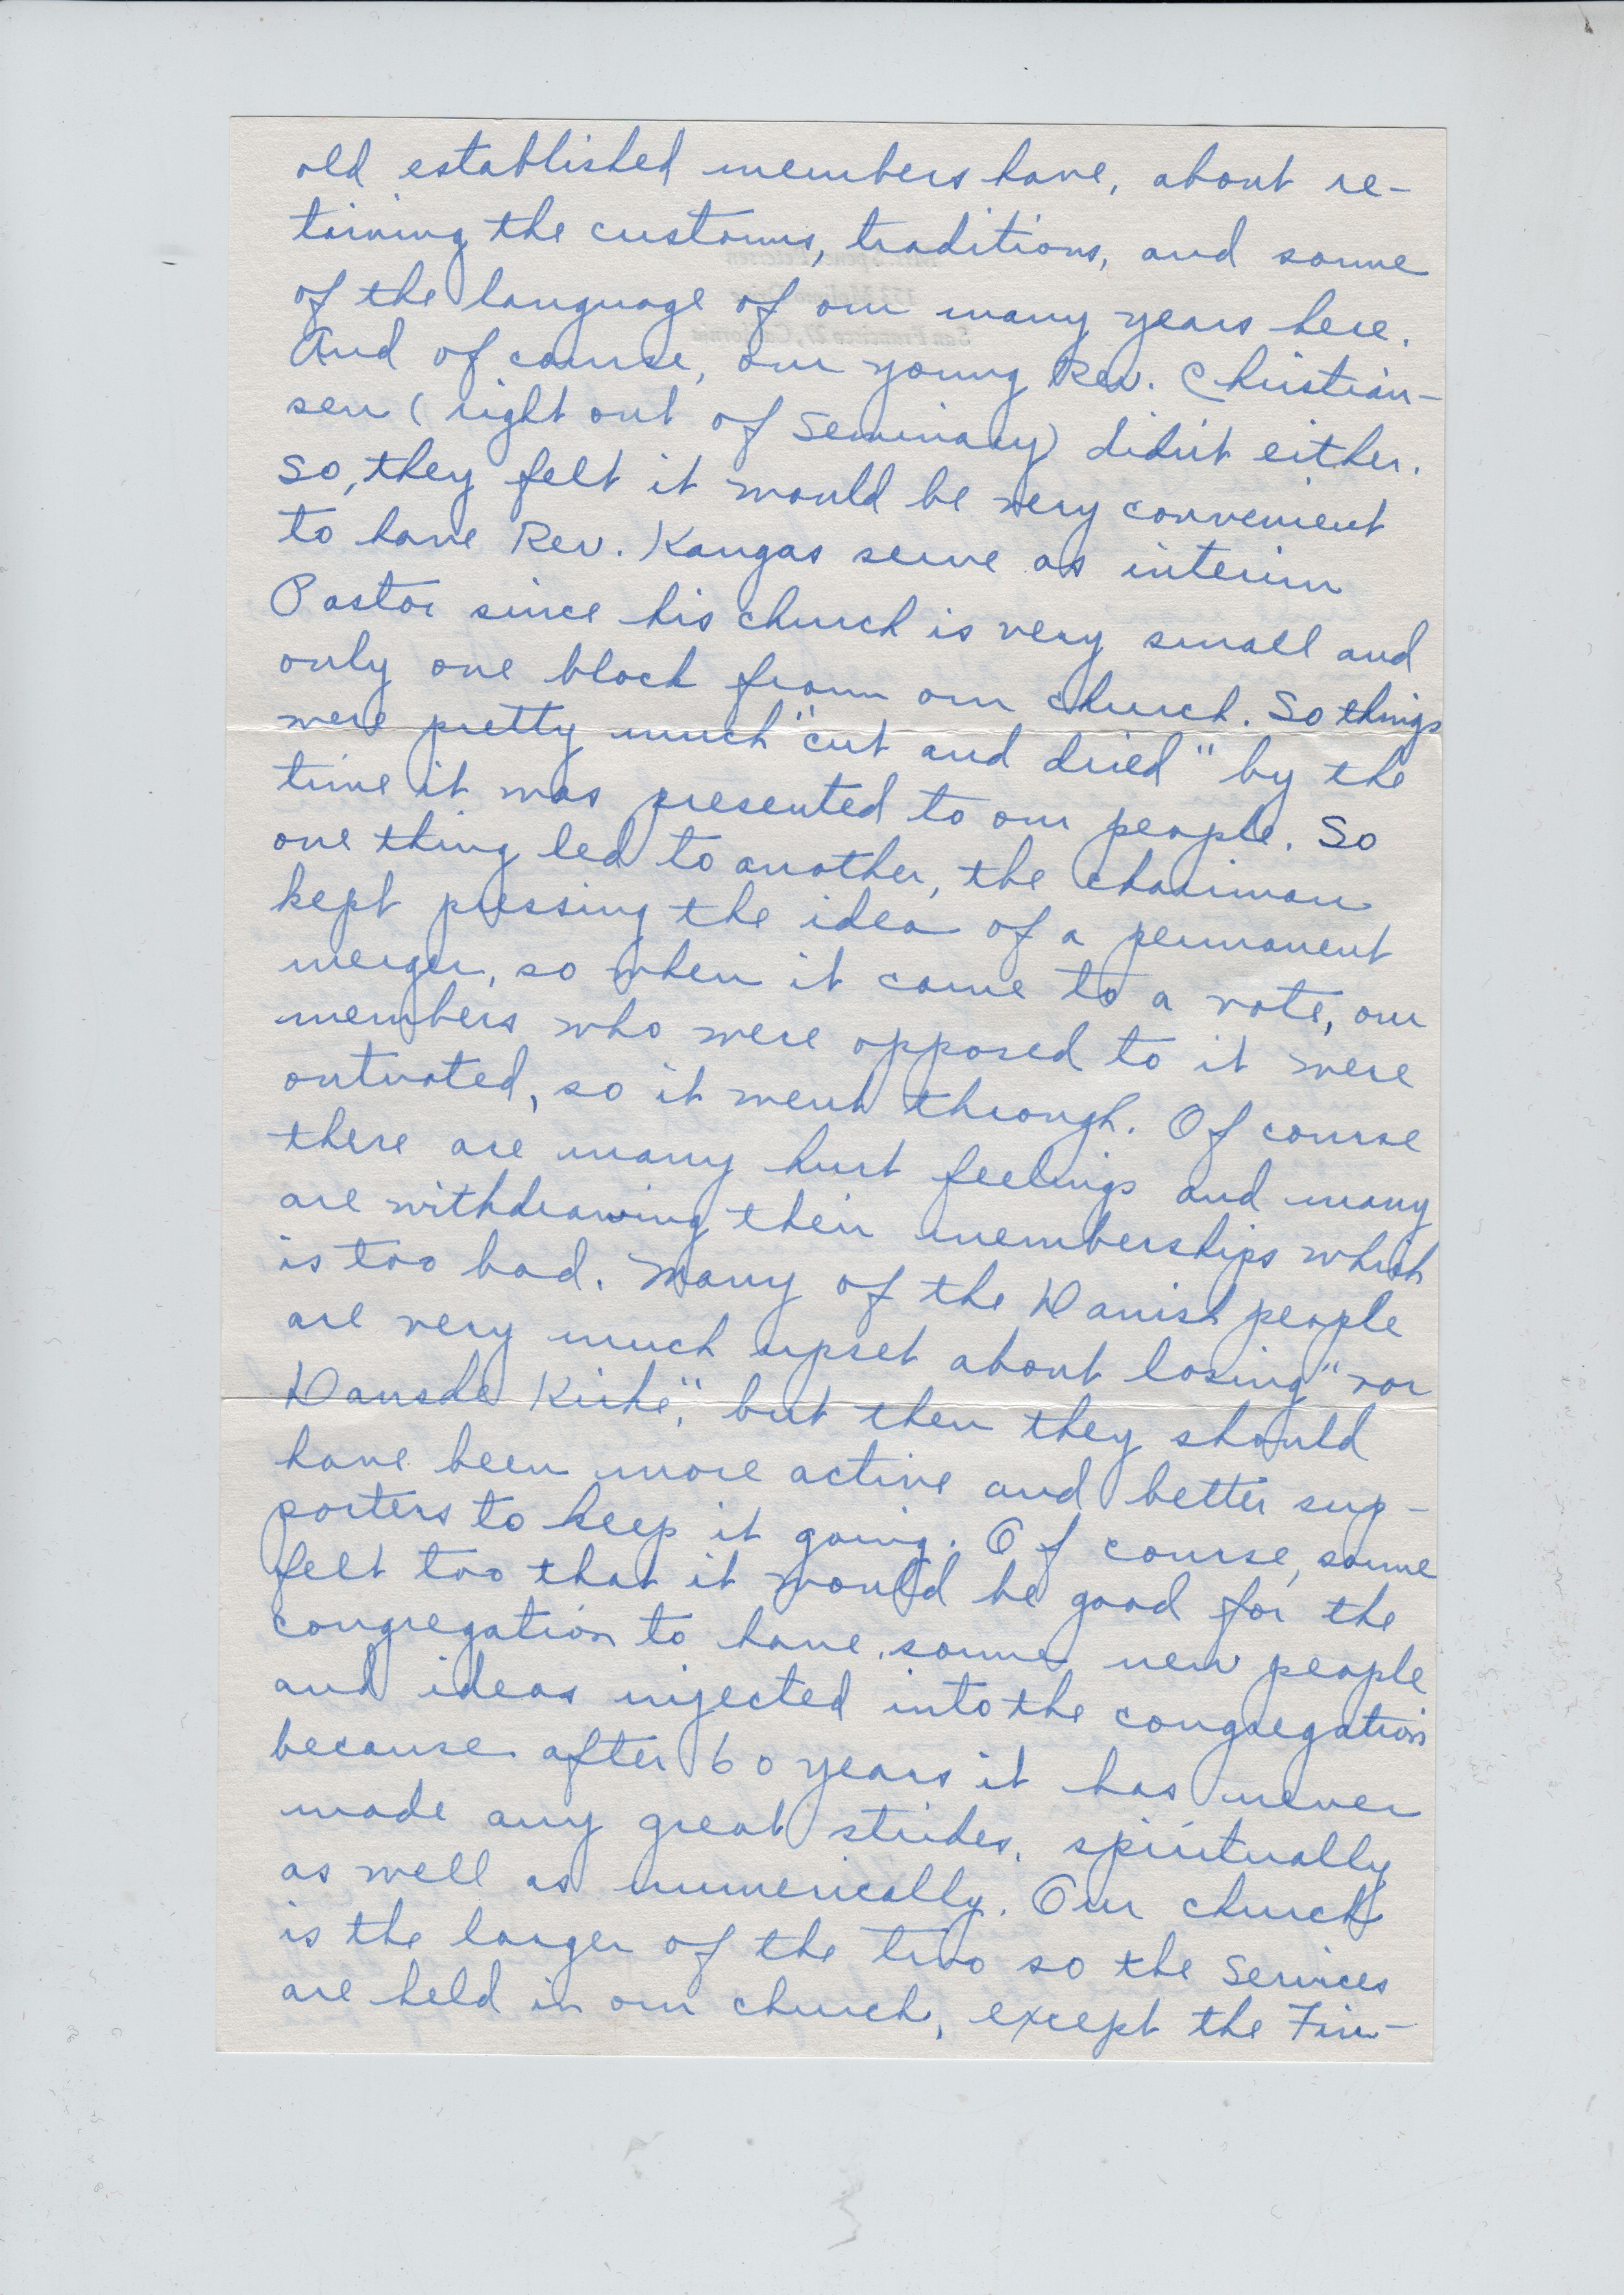 old established members have, about re-
taining the customs, traditions, and some
of the language of our many years here.
And of course, our young Rev. Christian-
sen (right out of Seminary) didn't either.
So, they felt it would be very convenient
to have Rev. Kangas serve as interim
Pastor since his church is very small and
only one block from our church. So things
were pretty much "cut and dried" by the
time it was presented to our people. So
one thing led to another, the chairman
kept pressing the idea of a permanent
merger, so when it came to a vote, our
members who were opposed to it were
outvoted, so it went through. Of course
there are many hurt feelings and many
are withdrawing their memberships which
is too bad. Many of the Danish people
are very much upset about losing "vor
Danske Kirke", but then they should
have been more active and better sup-
porters to keep it going. Of course, some
felt too that it would be good for the
congregation to have some new people
and ideas injected into the congregation
because after 60 years it has never
made any great strides, spiritually
as well as numerically. Our church
is the larger of the two so the Services
are held in our church, except the Finn-